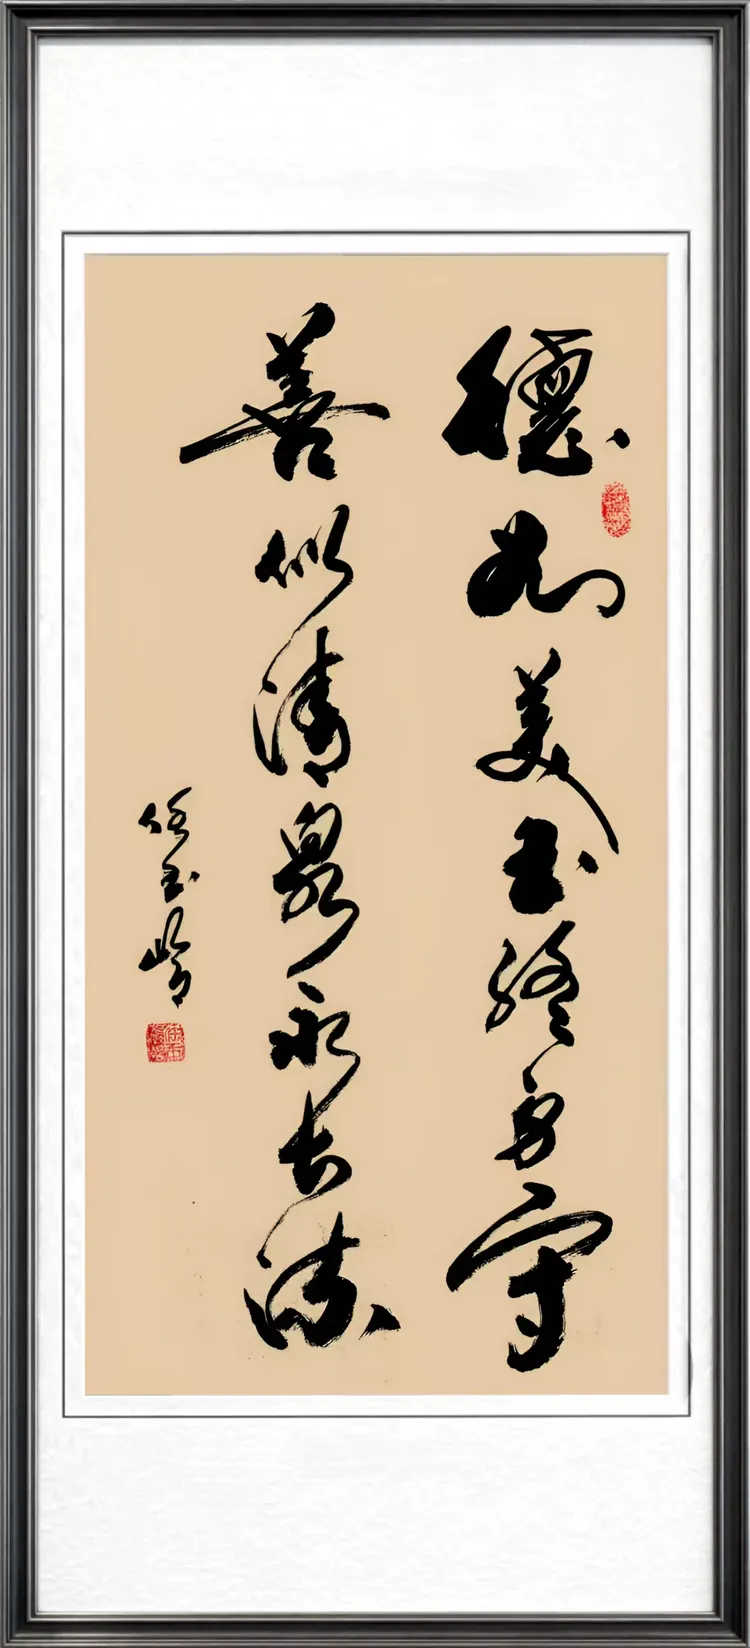 德如美玉终身守
善似清泉永长流
任玉岭